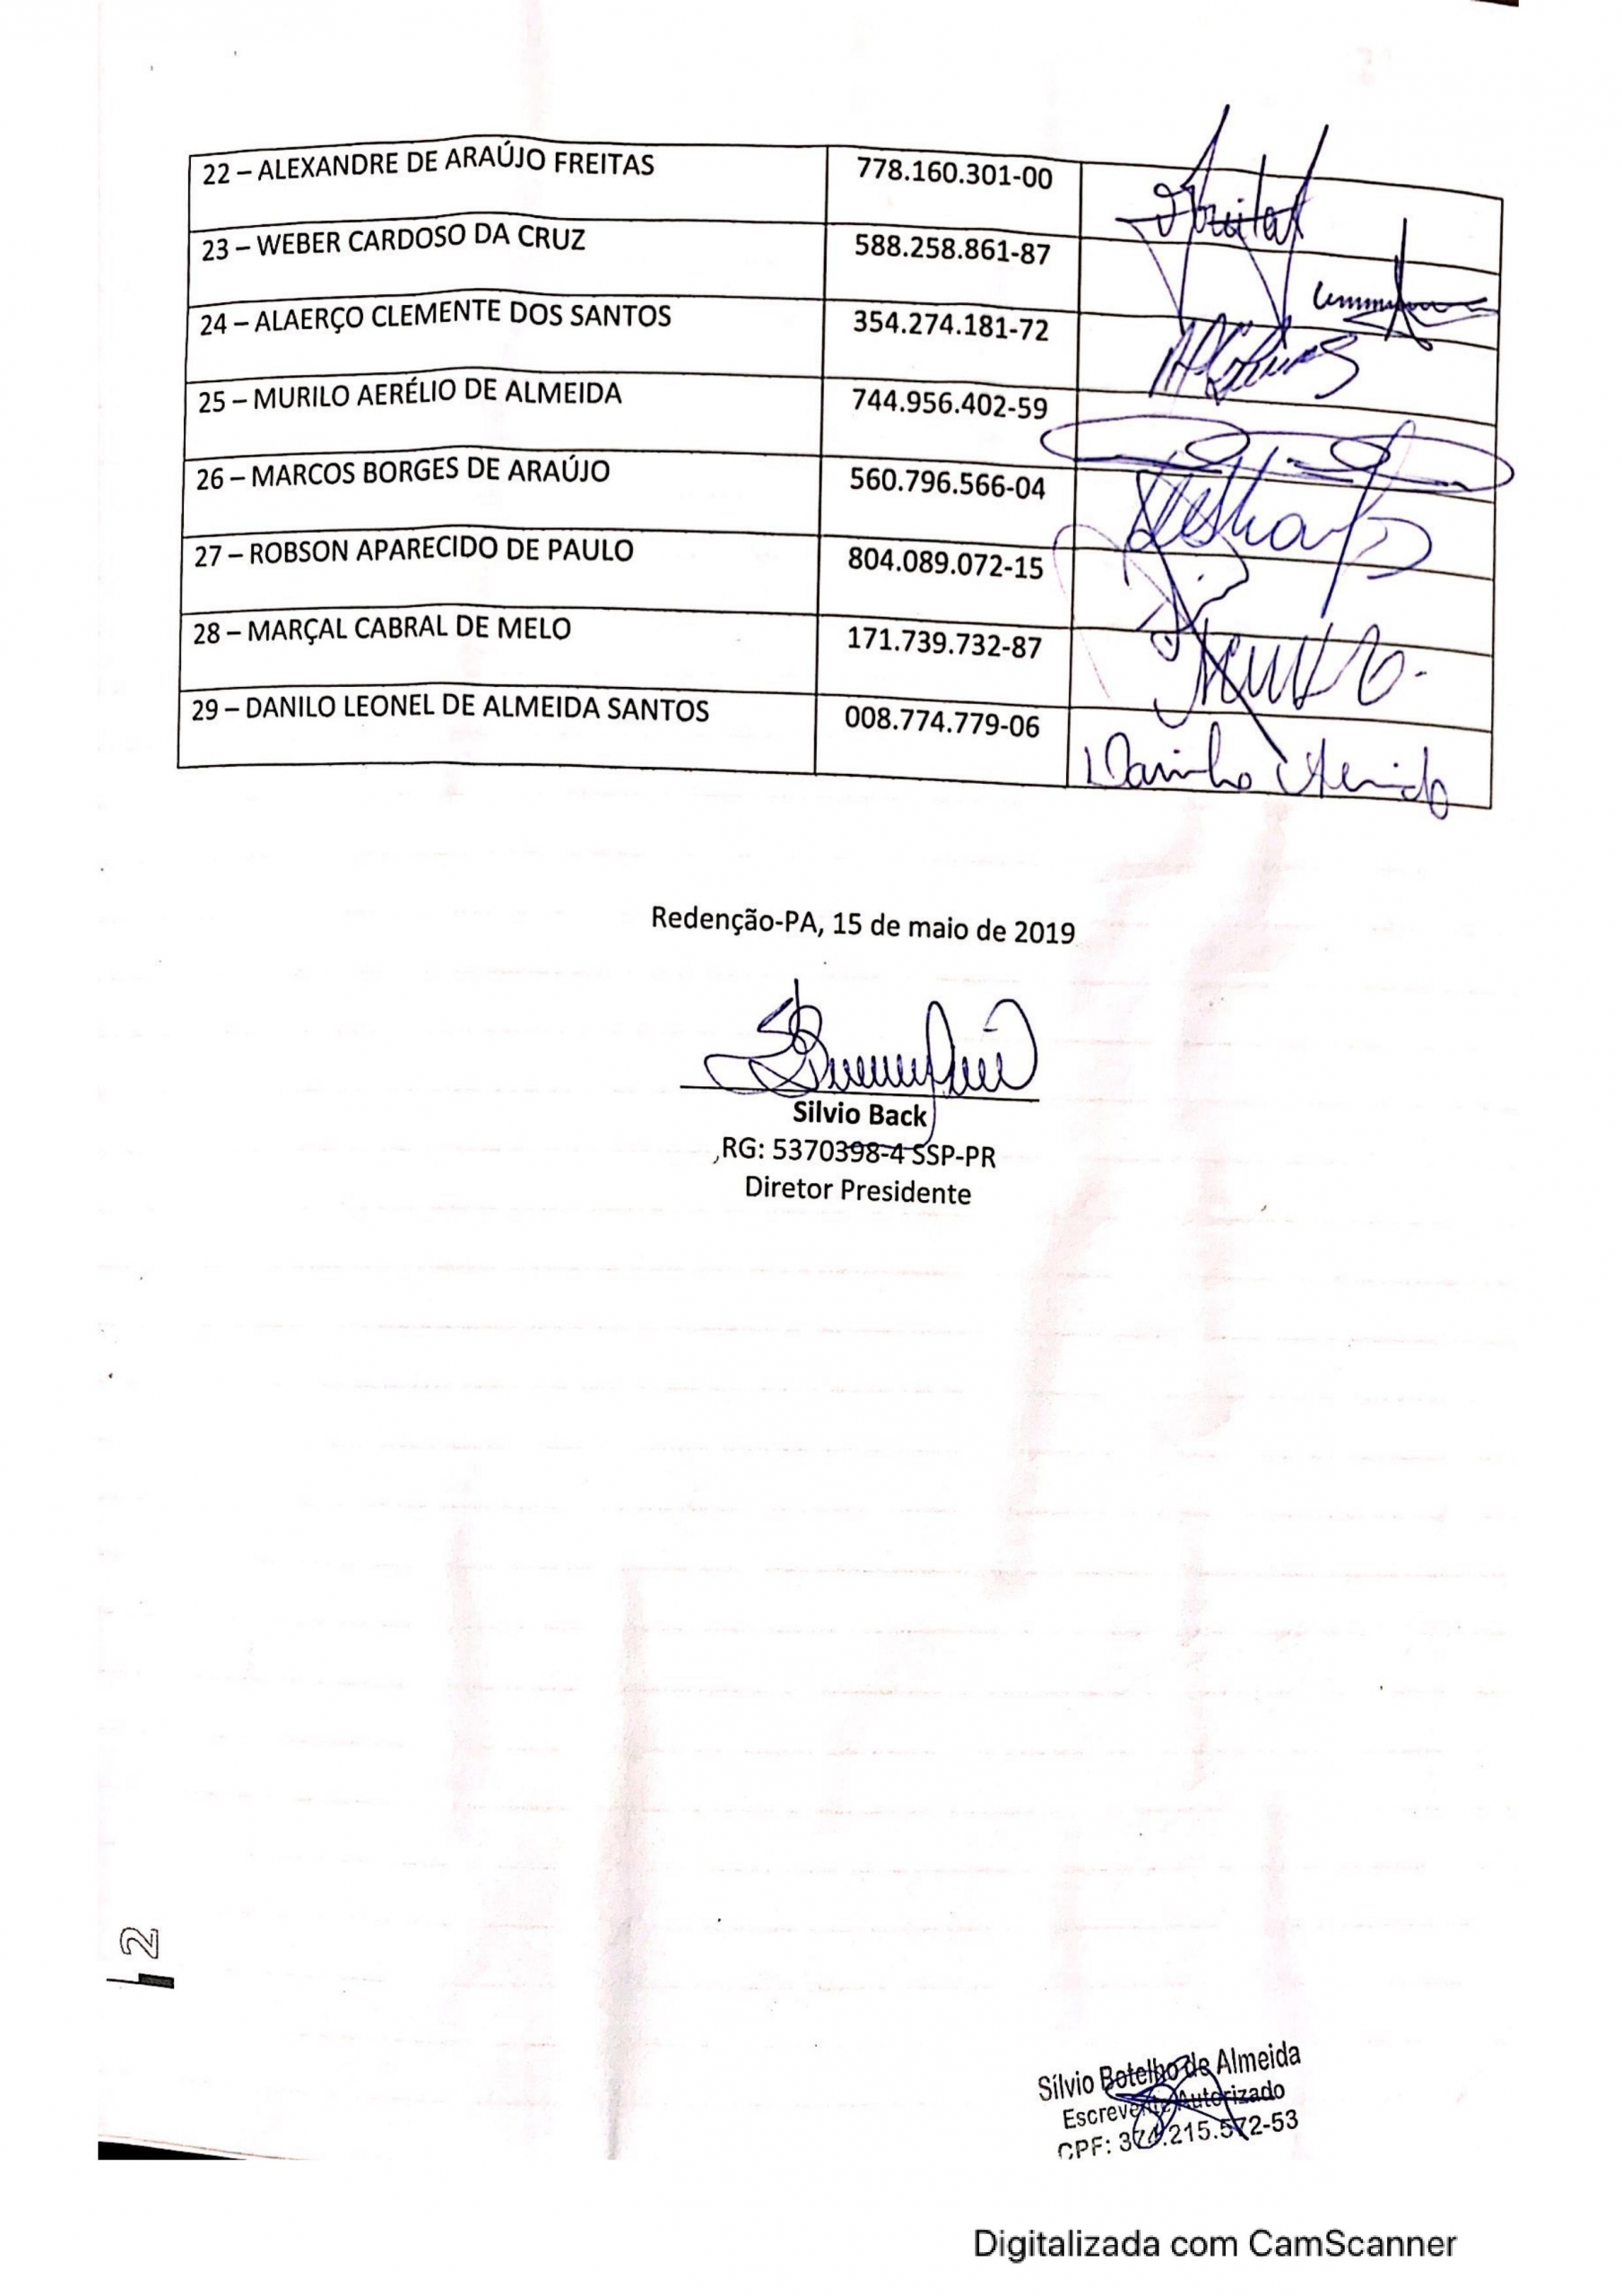 22 – ALEXANDRE DE ARAÚJO FREITAS 778.160.301-00
23 – WEBER CARDOSO DA CRUZ 588.258.861-87
24 – ALAERÇO CLEMENTE DOS SANTOS 354.274.181-72
25 – MURILO AERÉLIO DE ALMEIDA 744.956.402-59
26 – MARCOS BORGES DE ARAÚJO 560.796.566-04
27 – ROBSON APARECIDO DE PAULO 804.089.072-15
28 – MARÇAL CABRAL DE MELO 171.739.732-87
29 – DANILO LEONEL DE ALMEIDA SANTOS 008.774.779-06
Redenção-PA, 15 de maio de 2019
Silvio Back
RG: 5370398-4 SSP-PR
Diretor Presidente
2
Sílvio Botelho de Almeida
Escrevente Autorizado
CPF: 374.215.572-53
Digitalizada com CamScanner